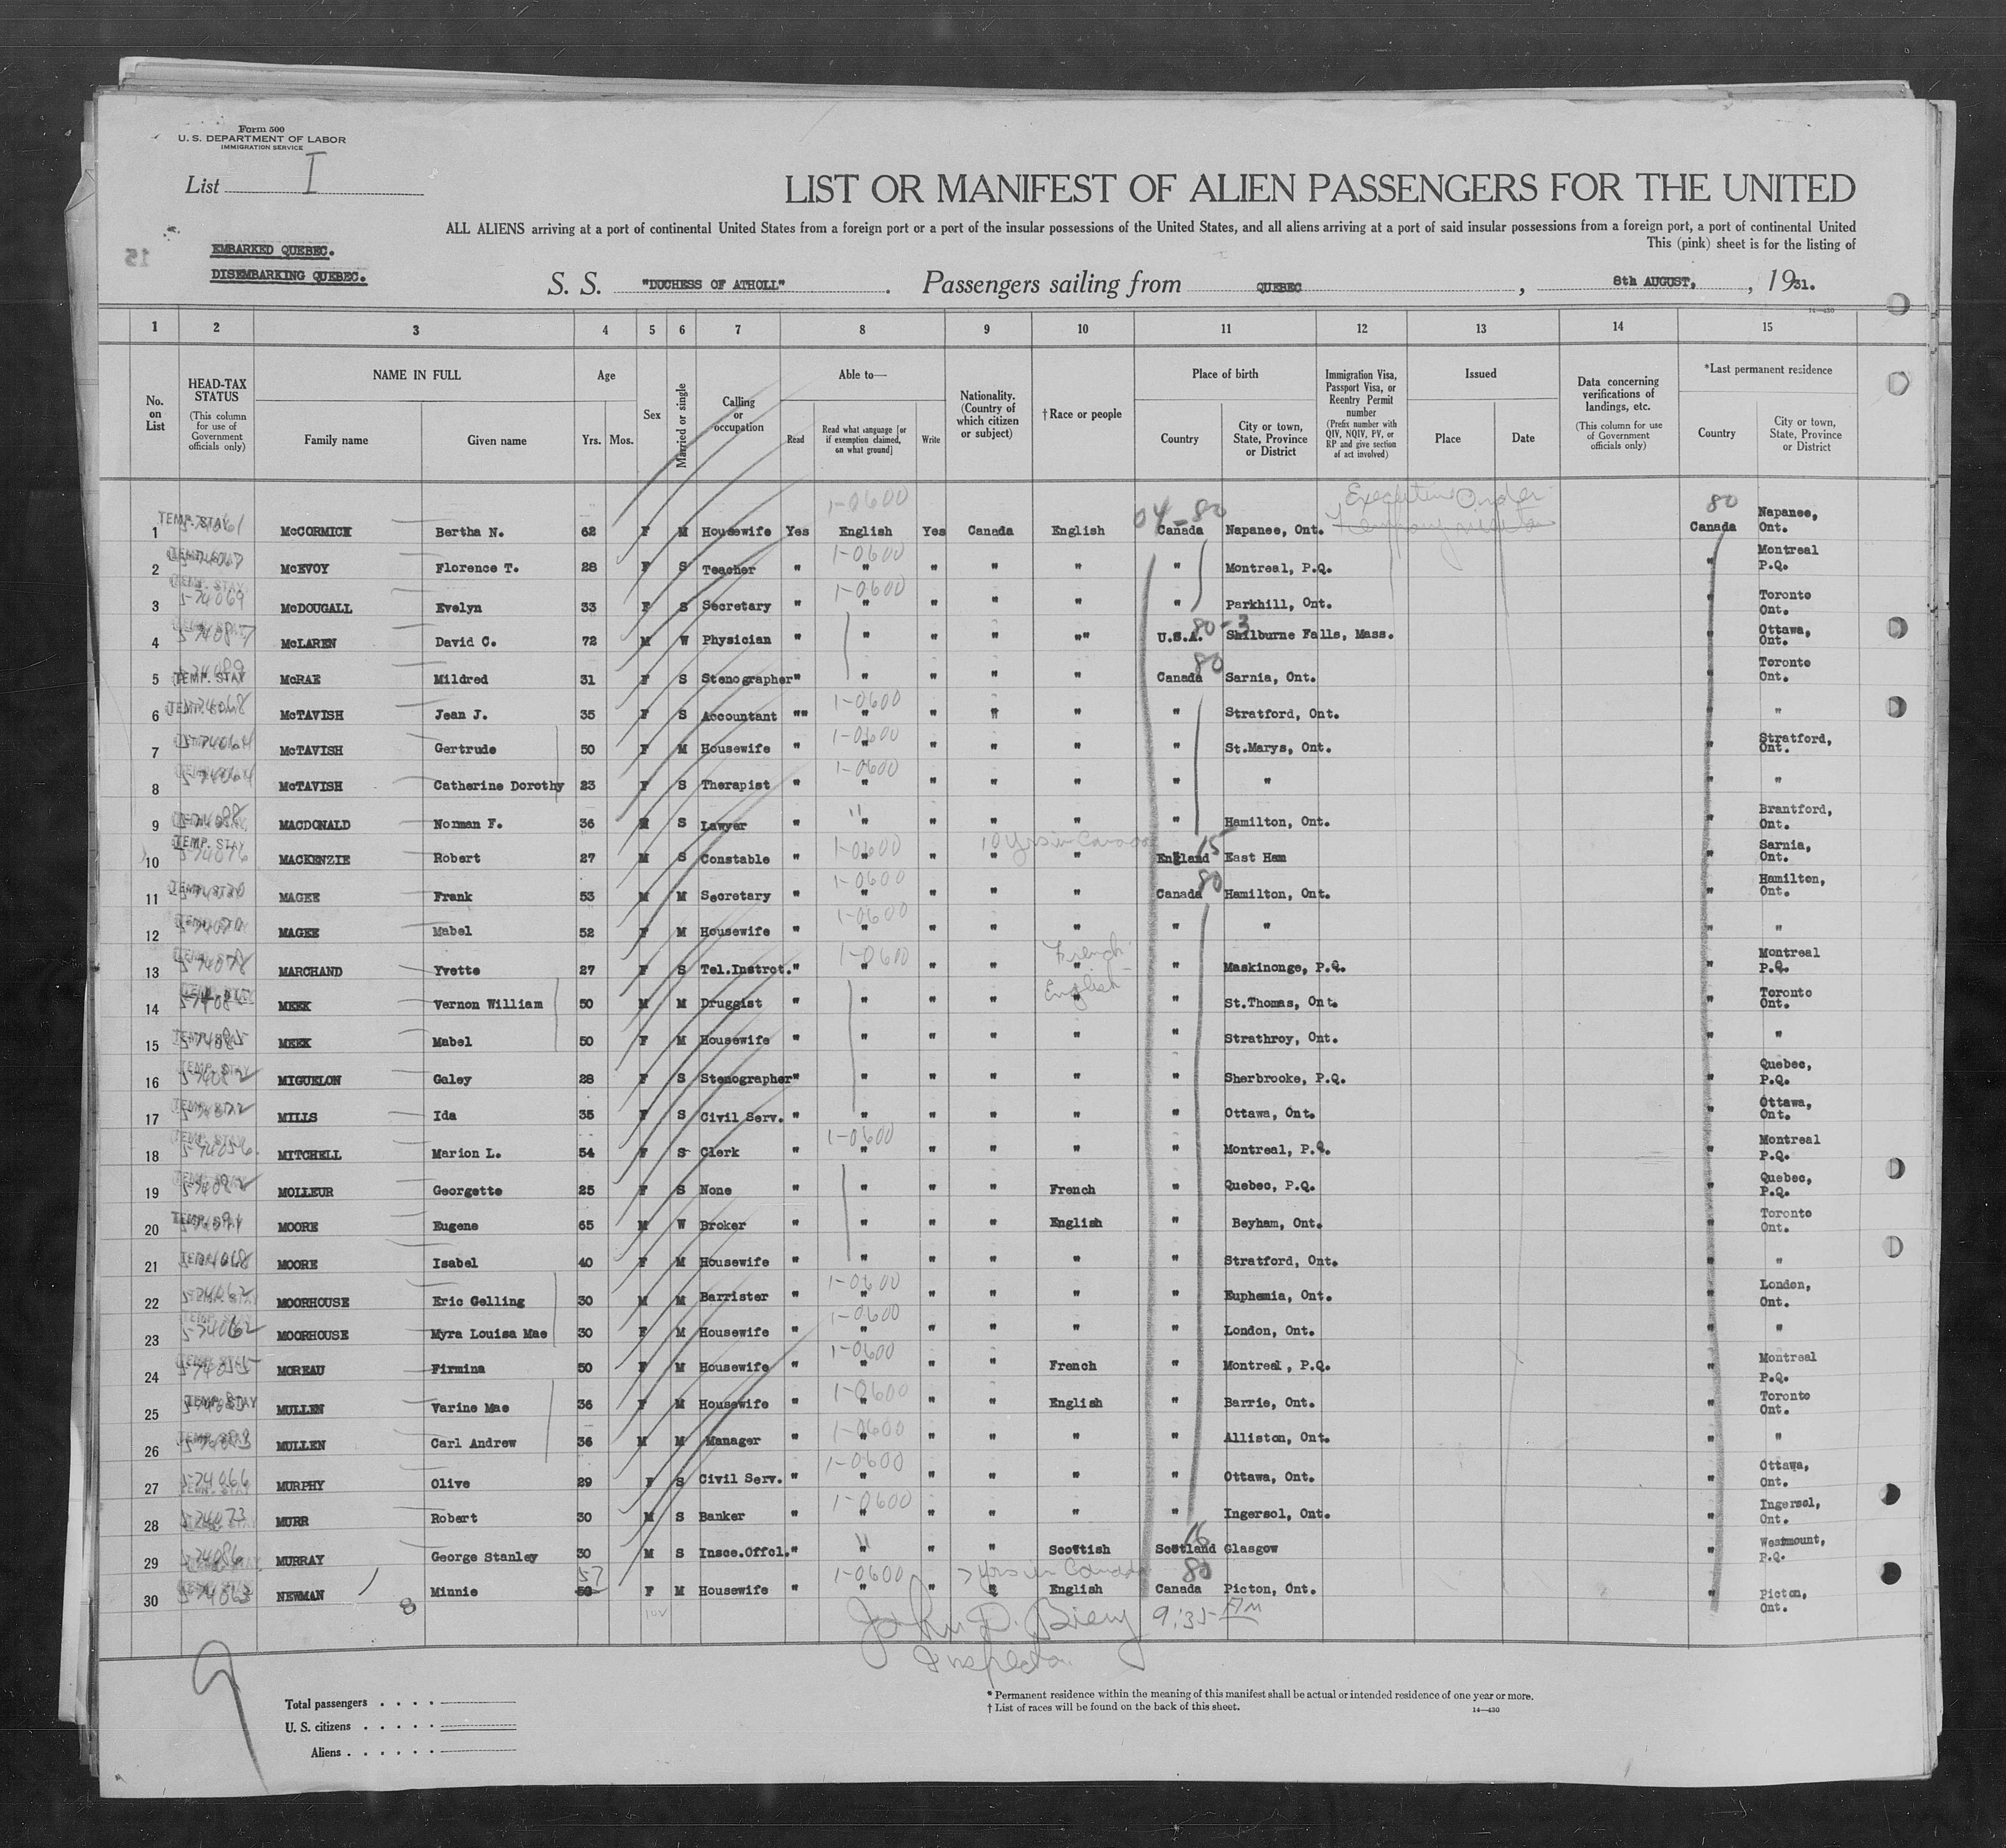 Form 500
U. S. DEPARTMENT OF LABOR
IMMIGRATION SERVICE
List I
LIST OR MANIFEST OF ALIEN PASSENGERS FOR THE UNITED
ALL ALIENS arriving at a port of continental United States from a foreign port or a port of the insular possessions of the United States, and all aliens arriving at a port of said insular possessions from a foreign port, a port of continental United
This (pink) sheet is for the listing of
EMBARKED QUEBEC.
DISEMBARKING QUEBEC.
S. S. "DUCHESS OF ATHOLL" . Passengers sailing from QUEBEC , 8th AUGUST, , 1931.
14—430
1 2 3 4 5 6 7 8 9 10 11 12 13 14 15
No. on List
HEAD-TAX STATUS (This column for use of Government officials only)
NAME IN FULL
Family name
Given name
Age
Yrs. Mos.
Sex
Married or single
Calling or occupation
Able to—
Read
Read what language [or if exemption claimed, on what ground]
Write
Nationality. (Country of which citizen or subject)
† Race or people
Place of birth
Country
City or town, State, Province or District
Immigration Visa, Passport Visa, or Reentry Permit number (Prefix number with QIV, NQIV, PV, or RP and give section of act involved)
Issued
Place
Date
Data concerning verifications of landings, etc. (This column for use of Government officials only)
*Last permanent residence
Country
City or town, State, Province or District
1-0600 04-80 Executive Order 80
1 TEMP. STAY McCORMICK Bertha N. 62 F M Housewife Yes English Yes Canada English Canada Napanee, Ont. Canada Napanee, Ont.
2 McEVOY Florence T. 28 F S Teacher " 1-0600 " " " " " Montreal, P.Q. " Montreal P.Q.
3 5-74069 McDOUGALL Evelyn 33 F S Secretary " 1-0600 " " " " " Parkhill, Ont. " Toronto Ont.
4 McLAREN David C. 72 M W Physician " " " " "" U.S.A. 80-3 Shilburne Falls, Mass. " Ottawa, Ont.
5 TEMP. STAY McRAE Mildred 31 F S Stenographer " " " " " Canada 80 Sarnia, Ont. " Toronto Ont.
6 McTAVISH Jean J. 35 F S Accountant "" 1-0600 " " " " " Stratford, Ont. " "
7 McTAVISH Gertrude 50 F M Housewife " 1-0600 " " " " " St.Marys, Ont. " Stratford, Ont.
8 McTAVISH Catherine Dorothy 23 F S Therapist " 1-0600 " " " " " " " "
9 MACDONALD Norman F. 36 M S Lawyer " " " " " " Hamilton, Ont. " Brantford, Ont.
10 TEMP. STAY MACKENZIE Robert 27 M S Constable " 1-0600 " " 10 Yrs in Canada " " England 15 East Ham " Sarnia, Ont.
11 MAGEE Frank 53 M M Secretary " 1-0600 " " " " Canada 80 Hamilton, Ont. " Hamilton, Ont.
12 MAGEE Mabel 52 F M Housewife " 1-0600 " " " " " " " "
13 5-74078 MARCHAND Yvette 27 F S Tel.Instrct. " 1-0600 " " " French " " Maskinonge, P.Q. " Montreal P.Q.
14 MEEK Vernon William 50 M M Druggist " " " " English " " St.Thomas, Ont. " Toronto Ont.
15 MEEK Mabel 50 F M Housewife " " " " " " Strathroy, Ont. " "
16 MIGUELON Galey 28 F S Stenographer " " " " " " Sherbrooke, P.Q. " Quebec, P.Q.
17 MILLS Ida 35 F S Civil Serv. " " " " " " Ottawa, Ont. " Ottawa, Ont.
18 5-74056 MITCHELL Marion L. 54 F S Clerk " 1-0600 " " " " " Montreal, P.Q. " Montreal P.Q.
19 MOLLEUR Georgette 25 F S None " " " " French " Quebec, P.Q. " Quebec, P.Q.
20 MOORE Eugene 65 M W Broker " " " " English " Beyham, Ont. " Toronto Ont.
21 MOORE Isabel 40 F M Housewife " " " " " " Stratford, Ont. " "
22 5-74062 MOORHOUSE Eric Gelling 30 M M Barrister " 1-0600 " " " " " Euphemia, Ont. " London, Ont.
23 5-74062 MOORHOUSE Myra Louisa Mae 30 F M Housewife " 1-0600 " " " " " London, Ont. " "
24 5-74055 MOREAU Firmina 50 F M Housewife " 1-0600 " " " French " Montreal, P.Q. " Montreal P.Q.
25 TEMP. STAY MULLEN Varine Mae 36 F M Housewife " 1-0600 " " " English " Barrie, Ont. " Toronto Ont.
26 MULLEN Carl Andrew 36 M M Manager " 1-0600 " " " " " Alliston, Ont. " "
27 5-74066 MURPHY Olive 29 F S Civil Serv. " 1-0600 " " " " " Ottawa, Ont. " Ottawa, Ont.
28 5-74073 MURR Robert 30 M S Banker " 1-0600 " " " " " Ingersol, Ont. " Ingersol, Ont.
29 5-74086 MURRAY George Stanley 30 M S Insce.Offcl. " " " " Scottish Scotland 16 Glasgow " Westmount, P.Q.
30 5-74063 NEWMAN Minnie 57 F M Housewife " 1-0600 " " 7 Yrs in Canada " English Canada 80 Picton, Ont. " Picton, Ont.
8
John D. Bieny 9:35 AM
Inspector
9
Total passengers . . . .
U. S. citizens . . . . .
Aliens . . . . . .
* Permanent residence within the meaning of this manifest shall be actual or intended residence of one year or more.
† List of races will be found on the back of this sheet.
14—430